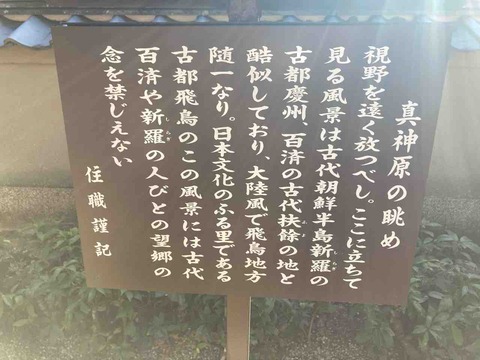 真神原の眺め
視野を遠く放つべし。ここに立ちて
見る風景は古代朝鮮半島新羅の
古都慶州、百済の古代扶餘の地と
酷似しており、大陸風で飛鳥地方
随一なり。日本文化のふる里である
古都飛鳥のこの風景には古代
百済や新羅の人びとの望郷の
念を禁じえない
住職謹記